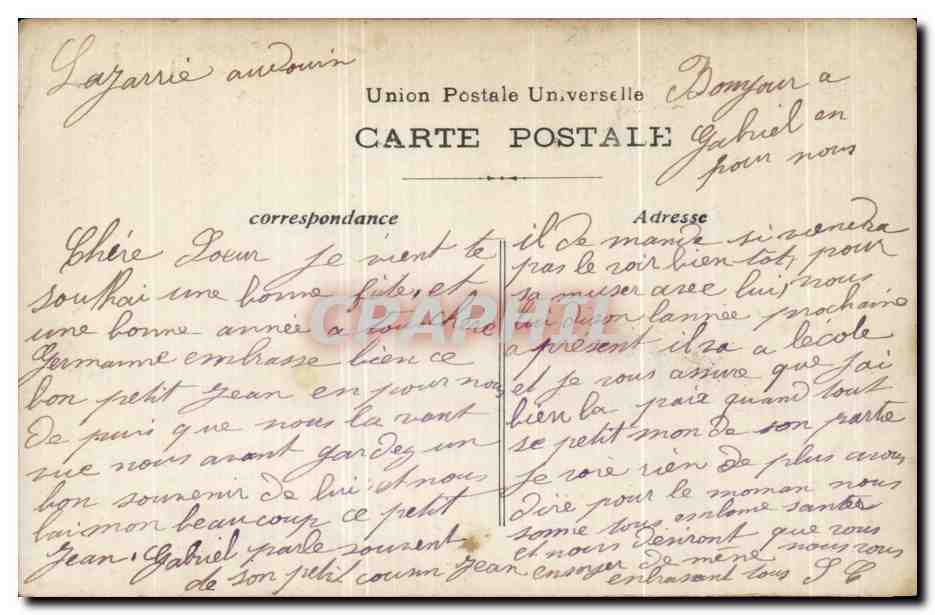 Lazarrie audouin
Bonjour a
Gabriel en
pour nous
Union Postale Universelle
CARTE POSTALE
correspondance
Adresse
Chére Soeur je vient te
souhai une bonne fête, et
une bonne annee a toi chere
Germanne embrasse bien ce
bon petit Jean en pour nous
de puis que nous la vont
vue nous avont gardez un
bon souvenir de lui et nous
laimon beaucoup ce petit
Jean, Gabriel parle souvent
de son petit cousin Jean
il de mande si viendra
pas le voir bien tot, pour
sa muser avec lui, nous
lui dison lannée prochaine
a présent il va a lécole
et je vous assure que j'ai
bien la paix quand tout
se petit monde son partie
je voie rien de plus a vous
dire pour le moman nous
somme tous en bonne santer
et nous désiront que vous
ensoyer de mène nous vous
enbrasant tous S C
CPAPHIL